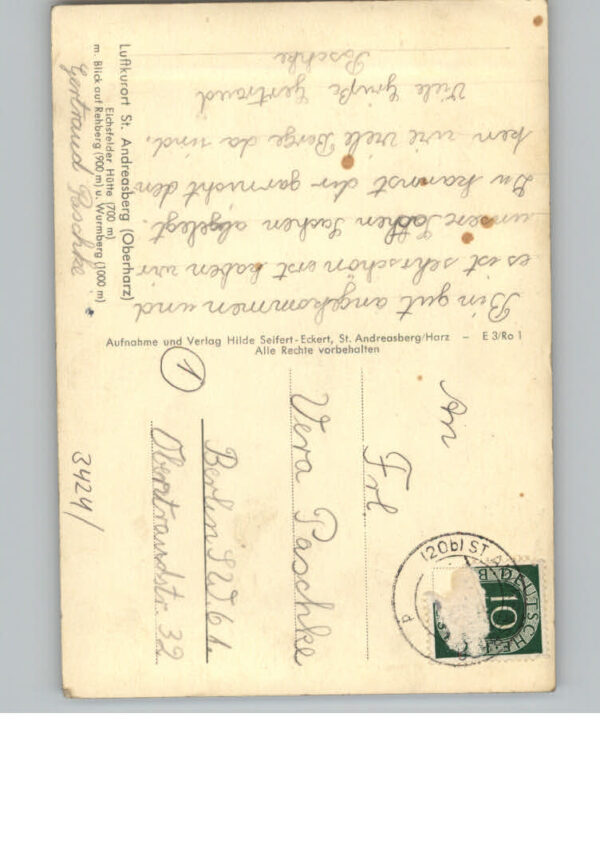 Luftkurort St. Andreasberg (Oberharz)
Eichsfelder Hütte (700 m)
m. Blick auf Rehberg (900 m) u. Wurmberg (1000 m)
Gertraud Paschke
Bin gut angekommen und
es ist sehr schön erst haben wir
unsere Sachen abgelegt.
Du kannst dir garnicht den
ken wie viele Berge da sind.
Viele Grüße Gertraud
Paschke
Aufnahme und Verlag Hilde Seifert-Eckert, St. Andreasberg/Harz – E 3/Ro 1
Alle Rechte vorbehalten
An
Frl.
Vera Paschke
Berlin S.W. 61
1
32
3424/
(20b) ST. A
DEUTSCHE B
10